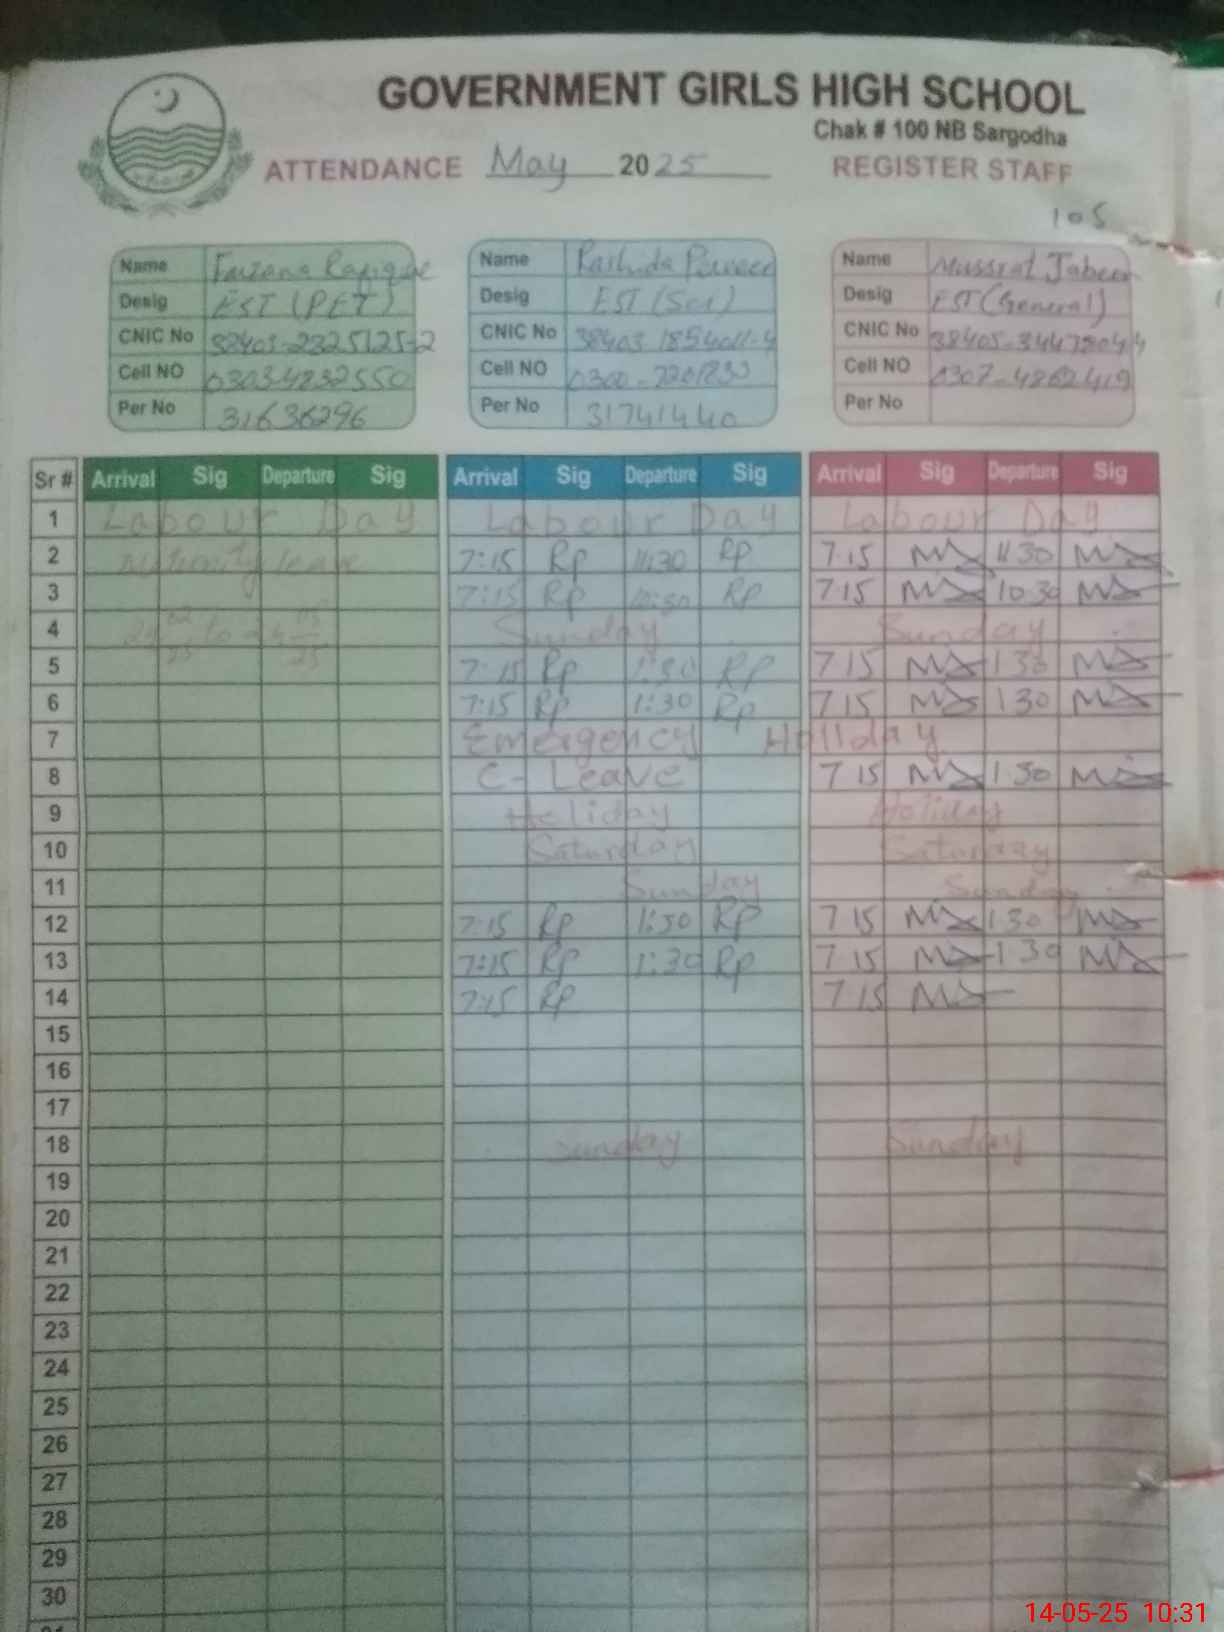 GOVERNMENT GIRLS HIGH SCHOOL
Chak # 100 NB Sargodha
ATTENDANCE May 2025 REGISTER STAFF
105
Name Fauzana Rafique Name Rashida Perveen Name Mussrat Jabeen
Desig EST (PET) Desig EST (Sci) Desig EST (General)
CNIC No 38403-2325125-2 CNIC No 38403 CNIC No 38405-
Cell NO 03034832550 Cell NO 0300- Cell NO 0307-4862419
Per No 31636296 Per No 31741440 Per No
Sr # Arrival Sig Departure Sig Arrival Sig Departure Sig Arrival Sig Departure Sig
1 Labour Day Labour Day Labour Day
2 leave 7:15 Rp 11:30 Rp 7 15 11 30
3 7:15 Rp 10:30 Rp 7 15 10 30
4 to Sunday Sunday
5 7:15 Rp 1:30 Rp 7 15 1 30
6 7:15 Rp 1:30 Rp 7 15 1 30
7 Emergency Holiday
8 C-Leave 7 15 1 30
9 Holiday Holiday
10 Saturday Saturday
11 Sunday Sunday
12 7:15 Rp 1:30 Rp 7 15 1 30
13 7:15 Rp 1:30 Rp 7 15 1 30
14 7:15 Rp 7 15
15
16
17
18 Sunday Sunday
19
20
21
22
23
24
25
26
27
28
29
30
14-05-25 10:31